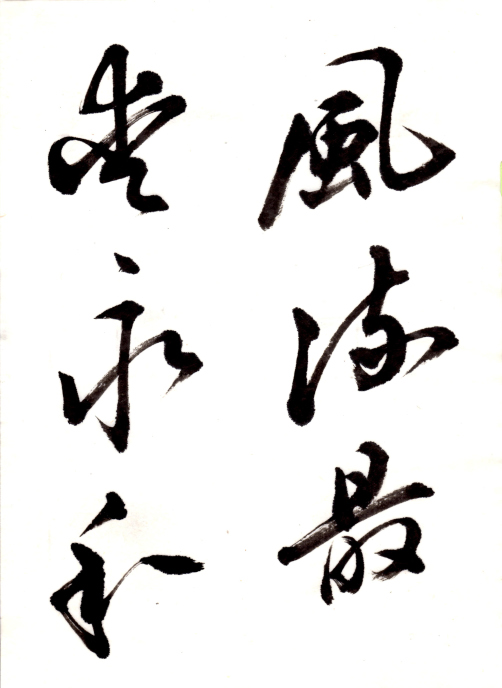 風流最
愛永和